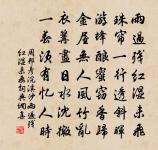 雨過殘紅溼未飛
珠帘一行透斜暉
游蜂釀蜜竊香歸
金屋無人風竹亂
衣篝盡日水沉微
一春須有憶人時
周邦彥浣溪沙雨過殘
紅溼未飛詞